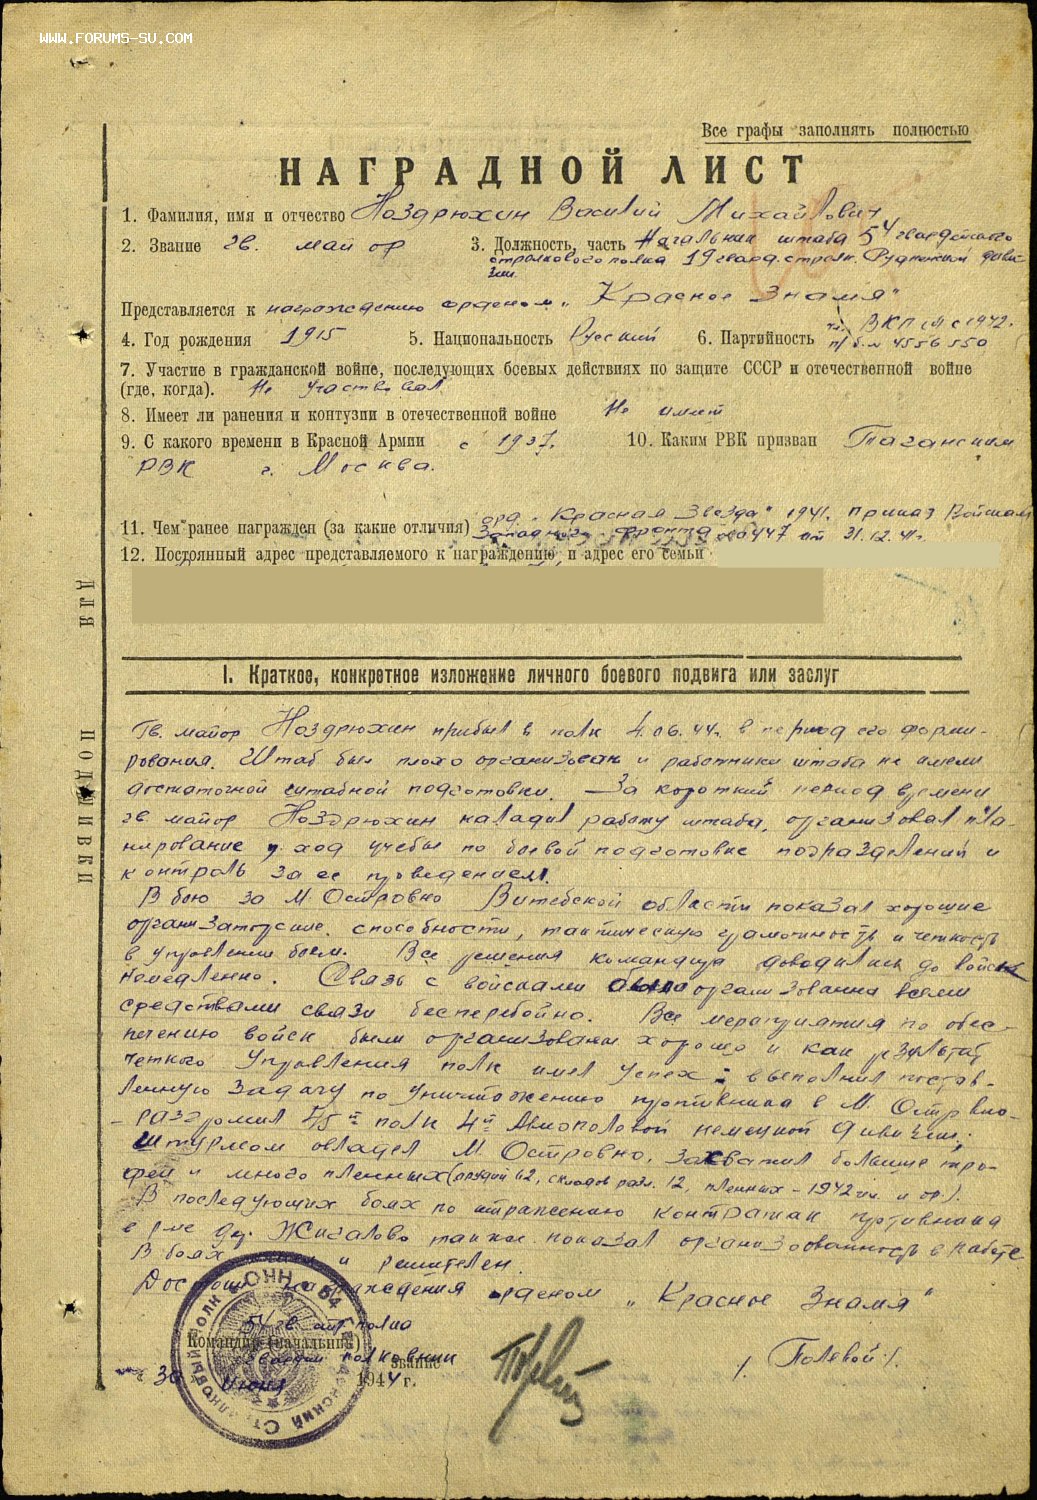 WWW.FORUMS-SU.COM
Все графы заполнять полностью
НАГРАДНОЙ ЛИСТ
1. Фамилия, имя и отчество Ноздрюхин Василий Михайлович
2. Звание гв. майор 3. Должность, часть Начальник штаба 54 гвардейского
стрелкового полка 19 гвард. стрелк. Рудненской диви-
зии.
Представляется к награждению орденом „Красное Знамя"
4. Год рождения 1915 5. Национальность Русский 6. Партийность ВКП(б) с 1942.
п/б. № 4556550
7. Участие в гражданской войне, последующих боевых действиях по защите СССР и отечественной войне
(где, когда). Не участвовал
8. Имеет ли ранения и контузии в отечественной войне Не имеет
9. С какого времени в Красной Армии с 1937. 10. Каким РВК призван Таганским
РВК г. Москва.
11. Чем ранее награжден (за какие отличия) орд. „Красная Звезда" 1941. приказ Войскам
Западного фронта №0447 от 31.12.41г.
12. Постоянный адрес представляемого к награждению и адрес его семьи
ДЛЯ ПОДШИВКИ
I. Краткое, конкретное изложение личного боевого подвига или заслуг
Гв. майор Ноздрюхин прибыл в полк 4.06.44г. в период его форми-
рования. Штаб был плохо организован и работники штаба не имели
достаточной штабной подготовки. За короткий период времени
гв. майор Ноздрюхин наладил работу штаба, организовал пла-
нирование и ход учебы по боевой подготовке подразделений и
контроль за ее проведением.
В бою за М. Островно Витебской области показал хорошие
организаторские способности, тактическую грамотность и четкость
в управлении боем. Все решения командира доводились до войск
немедленно. Связь с войсками была организованна всеми
средствами связи бесперебойно. Все мероприятия по обес-
печению войск были организованы хорошо и как результат
четкого управления полк имел успех: выполнил постав-
ленную задачу по уничтожению противника в М. Островно
- разгромил 45й полк 4й Авиополевой немецкой дивизии,
штурмом овладел М. Островно, захватил большие тро-
феи и много пленных (орудий 62, складов разл. 12, пленных - 1942 чел. и др.).
В последующих боях по отражению контратак противника
в р-не д. Жигалово также показал организованность в работе
В боях и решителен.
Достоин награждения орденом „Красное Знамя"
54 гв. стр полка
Командир (начальник)
гвардии полковник звание /Полевой/.
30 июня 1944 г.
54 ГВАРДЕЙСКИЙ СТРЕЛКОВЫЙ ПОЛК